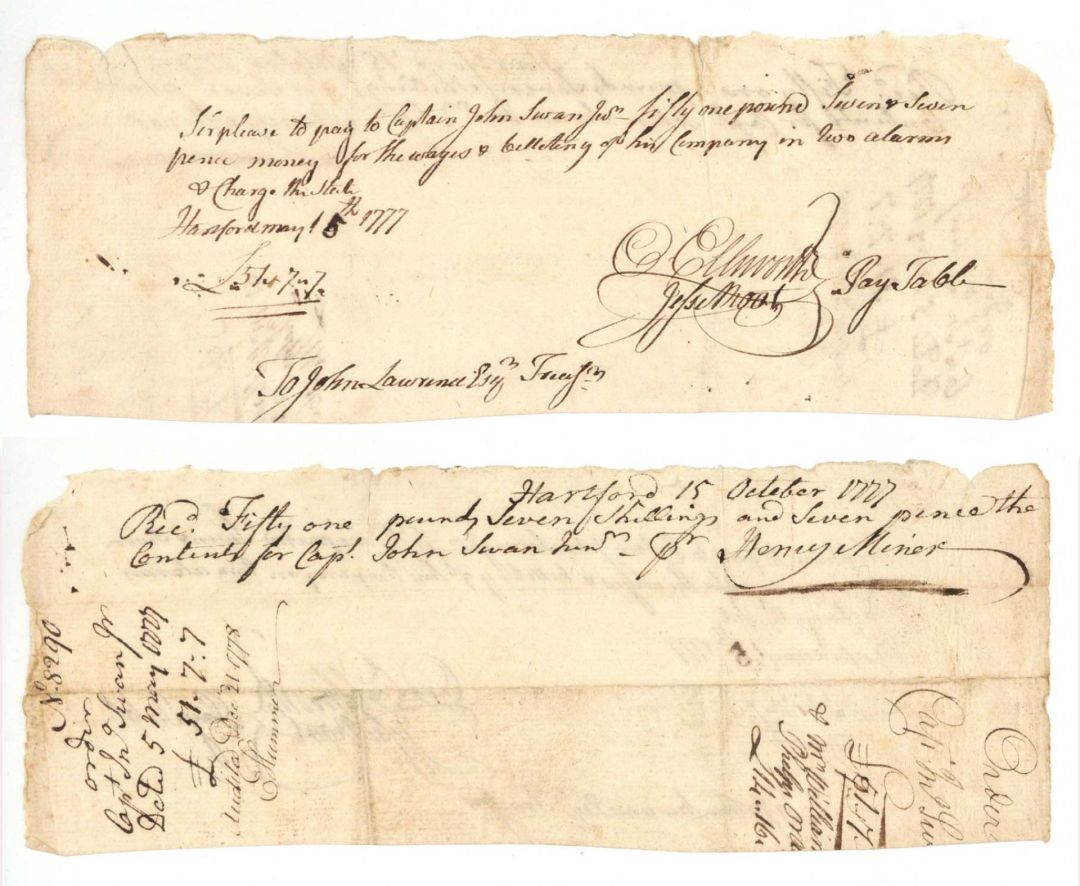 Sir please to pay to Captain John Swan Junr fifty one pound Seven & Seven
pence money for the wages & billeting of his Company in two alarms
& Charge the State
Hartford may 5th 1777
£51..7..7
O Ellsworth
Jesse Root
Pay Table
To John Lawrence Esqr Treasr
Hartford 15 October 1777
Recd. Fifty one pounds Seven Shillings and Seven pence the
Contents for Capt. John Swan Junr pr Henry Miner
No. 8290
order
Capt Jno Swan Jr
Dated 5 May 1777
£ 51.7.7
Audited Dec 21 1778
Order
Capt. Jn Sw
£51..7.
& Mr William
Phelps Orde